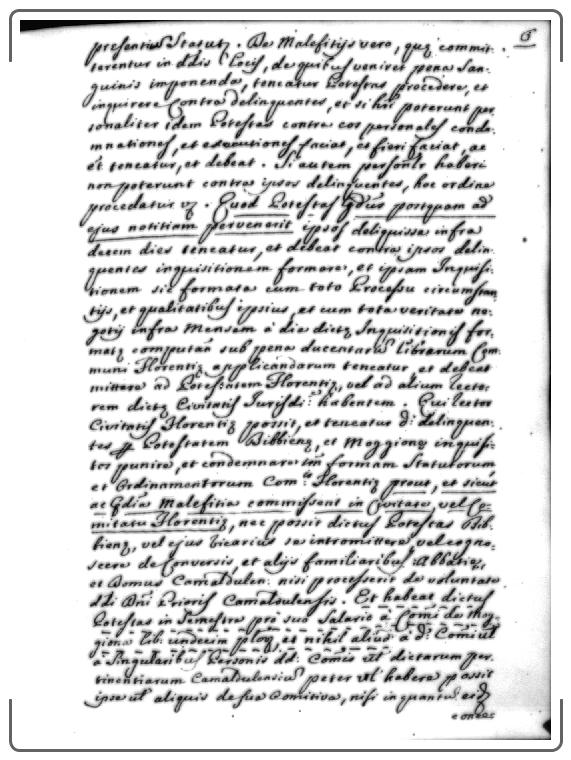 6
presentium Statutȝ. De Malefitijs vero, quę commit-
terentur in dd.is Locis, de quibus veniret pena San-
guinis imponenda, teneatur Potestas procedere, et
inquirere Contra delinquentes, et si hri poterunt per
sonaliter idem Potestas contra eos personales conde-
mnationes, et executiones faciat, et fieri faciat, ac
et teneatur, et debeat. Si autem personlr haberi
non poterunt contra ipsos delinquentes, hoc ordine
procedatur vȝ. Quod Potestas postquam ad
ejus notitiam pervenerit ipsos deliquisse infra
decem dies teneatur, et debeat contra ipsos delin-
quentes inquisitionem formare, et ipsam Inquisi-
tionem sic formata cum toto Processu circumstan
tijs, et qualitatibus ipsius, et cum tota veritate ne-
gotij infra Mensem a die dictę Inquisitionis for-
matę computan sub pena ducentarũ librarum Com-
muni Florentię applicandarum teneatur et debeat
mittere ad Potestatem Florentię, vel ad alium Recto-
rem dictę Civitatis Jurisdi: habentem. Qui Rector
Civitatis Florentię possit, et teneatur d: delinquen-
tes per Potestatem Bibbienę, et Moggionę inquisi-
tos punire, et condemnare formam Statutorum
et Ordinamentorum Com:is Florentię prout, et sicut
ac Malefitia commissent in Civitate vel Co-
mitatu Florentię, nec possit dictus Potestas Bib-
bienę, vel ejus Vicarius se intromittere vel cogno-
scere de Conversis, et alijs familiaribus Abbatię,
et Domus Camaldulen: nisi processerit de voluntate
ddi Dni Prioris Camaldulensis. Et habeat dictus
Potestas in Semestre pro suo Salario a Comi de Mog-
giona lib: undecim et nihil alius a d: Comi ut
a Singularibus Personis dd: Comis ut dictarum per-
tinentiarum Camaldulensiũ peter ut habere possit
ipse ut aliquis de sua Comitiva, nisi in quantũ